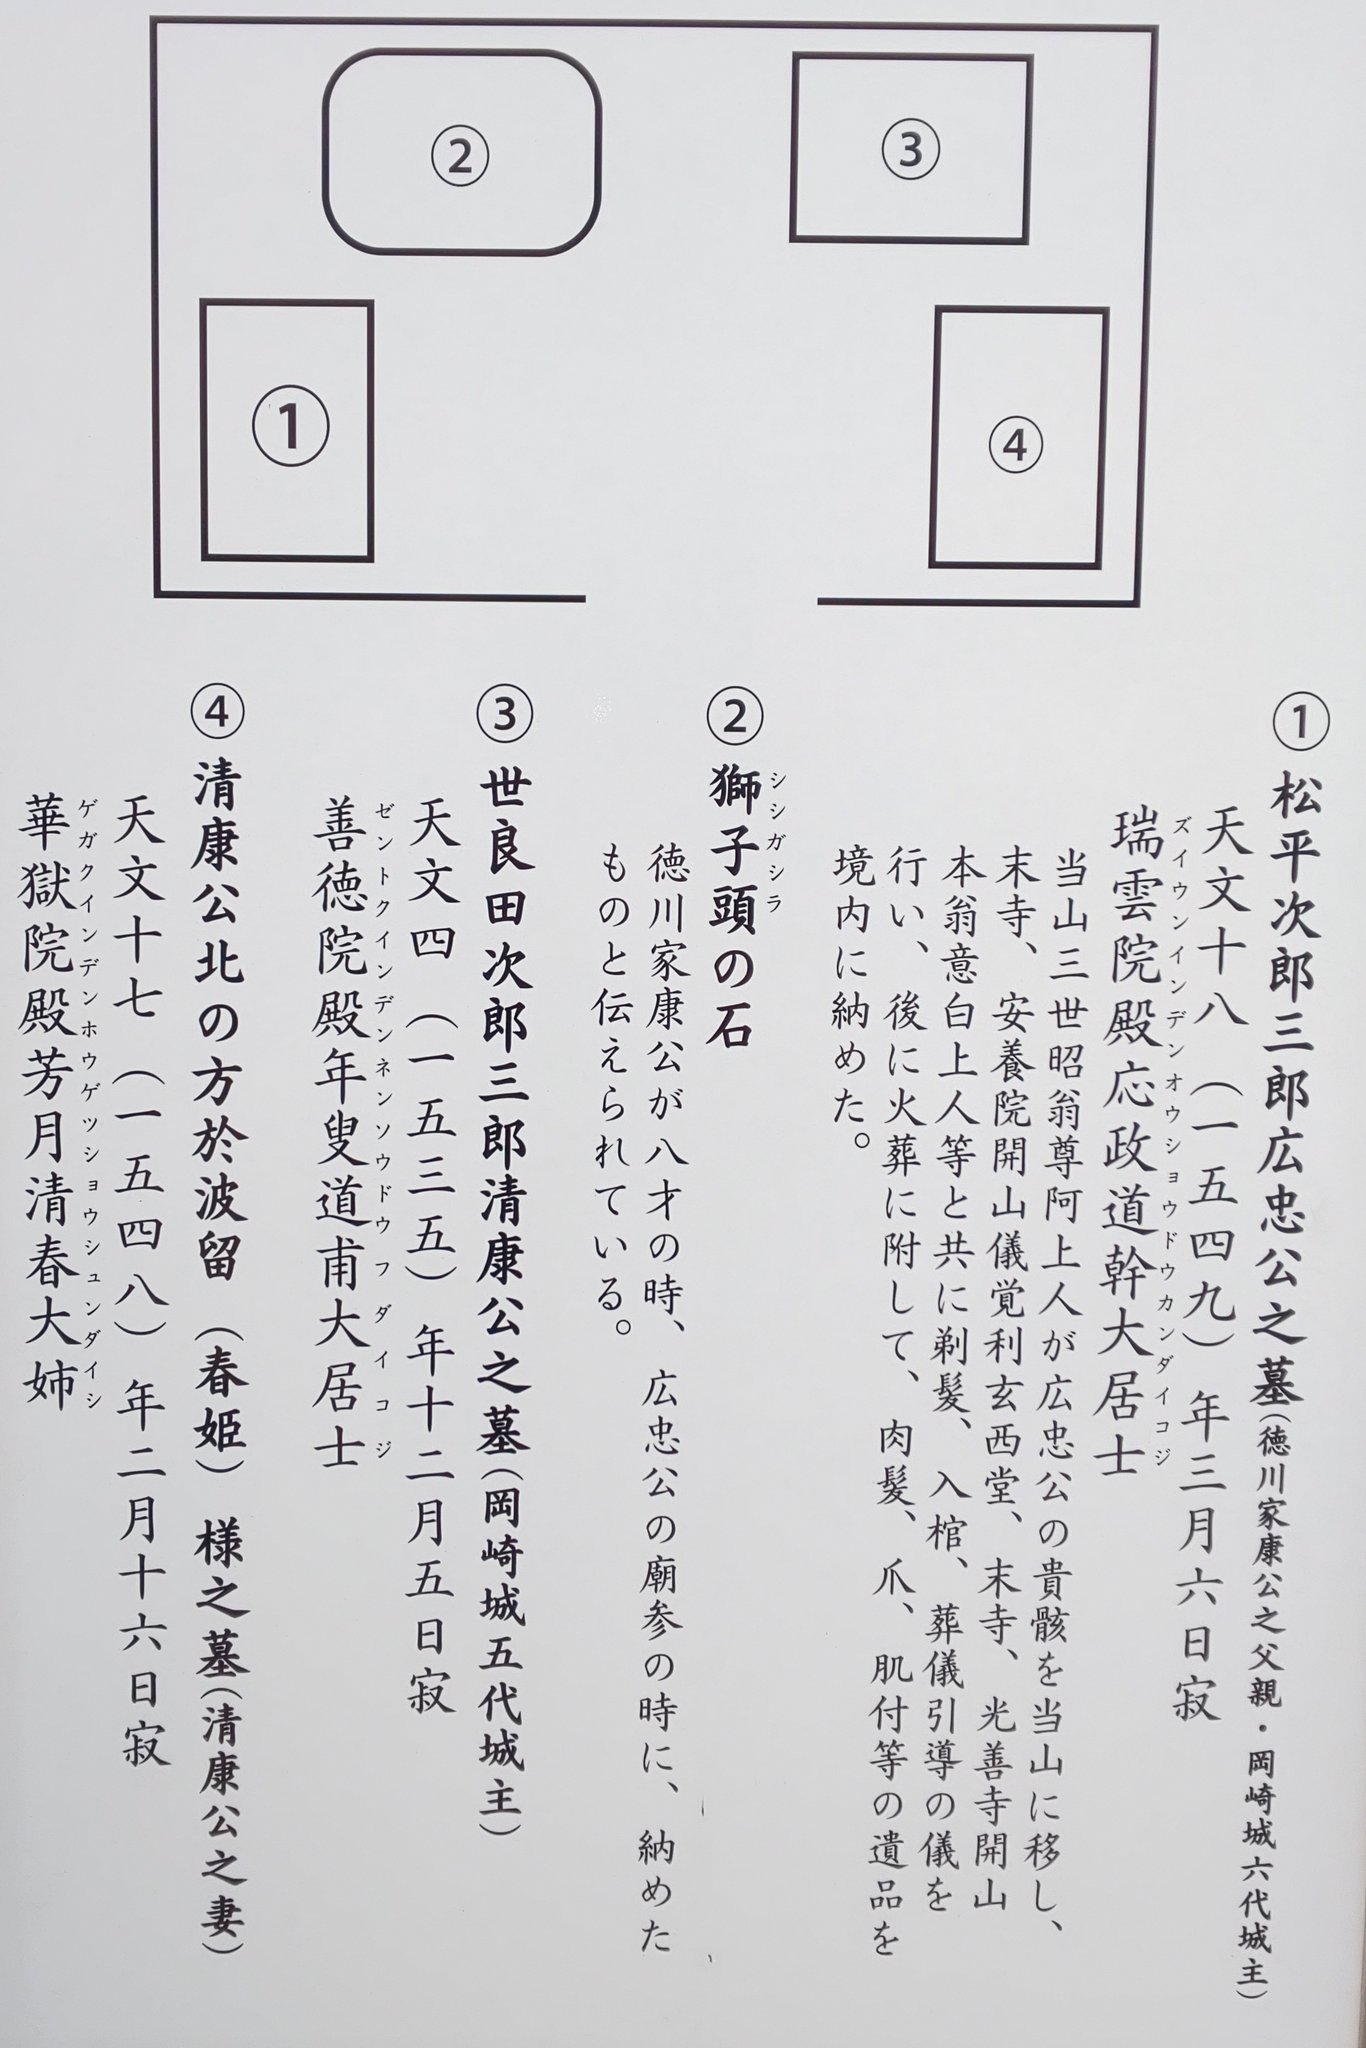 ②
③
①
④
① 松平次郎三郎広忠公之墓(徳川家康公之父親・岡崎城六代城主)
天文十八(一五四九)年三月六日寂
瑞雲院殿応政道幹大居士
ズイウンインデンオウショウドウカンダイコジ
当山三世昭翁尊阿上人が広忠公の貴骸を当山に移し、
末寺、安養院開山儀覚利玄西堂、末寺、光善寺開山
本翁意白上人等と共に剃髪、入棺、葬儀引導の儀を
行い、後に火葬に附して、肉髪、爪、肌付等の遺品を
境内に納めた。
② 獅子頭の石
シシガシラ
徳川家康公が八才の時、広忠公の廟参の時に、納めた
ものと伝えられている。
③ 世良田次郎三郎清康公之墓(岡崎城五代城主)
天文四(一五三五)年十二月五日寂
善徳院殿年叟道甫大居士
ゼントクインデンネンソウドウフダイコジ
④ 清康公北の方於波留(春姫)様之墓(清康公之妻)
天文十七(一五四八)年二月十六日寂
華獄院殿芳月清春大姉
ゲガクインデンホウゲッショウシュンダイシ